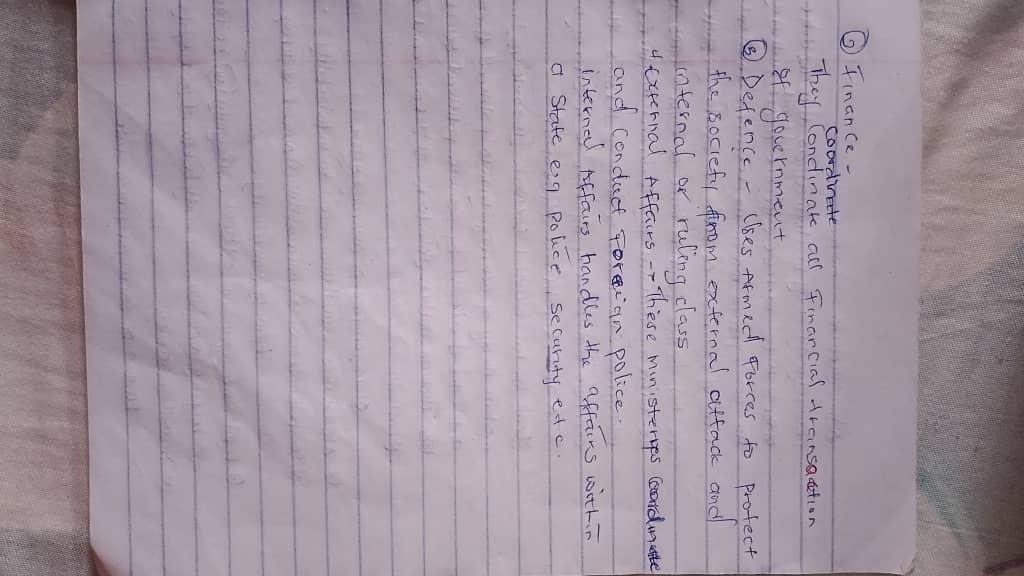 ⑥ Finance -
Coordinate
They Condinate all Financial transaction
of government
⑧ Defence - Uses Armed Forces to protect
the society from external attack and
internal or ruling class
External Affairs → These ministeryes Coordinatte
and Conduct Foreign police.
Internal Affairs handles the affairs within
a State e.g police, security etc.